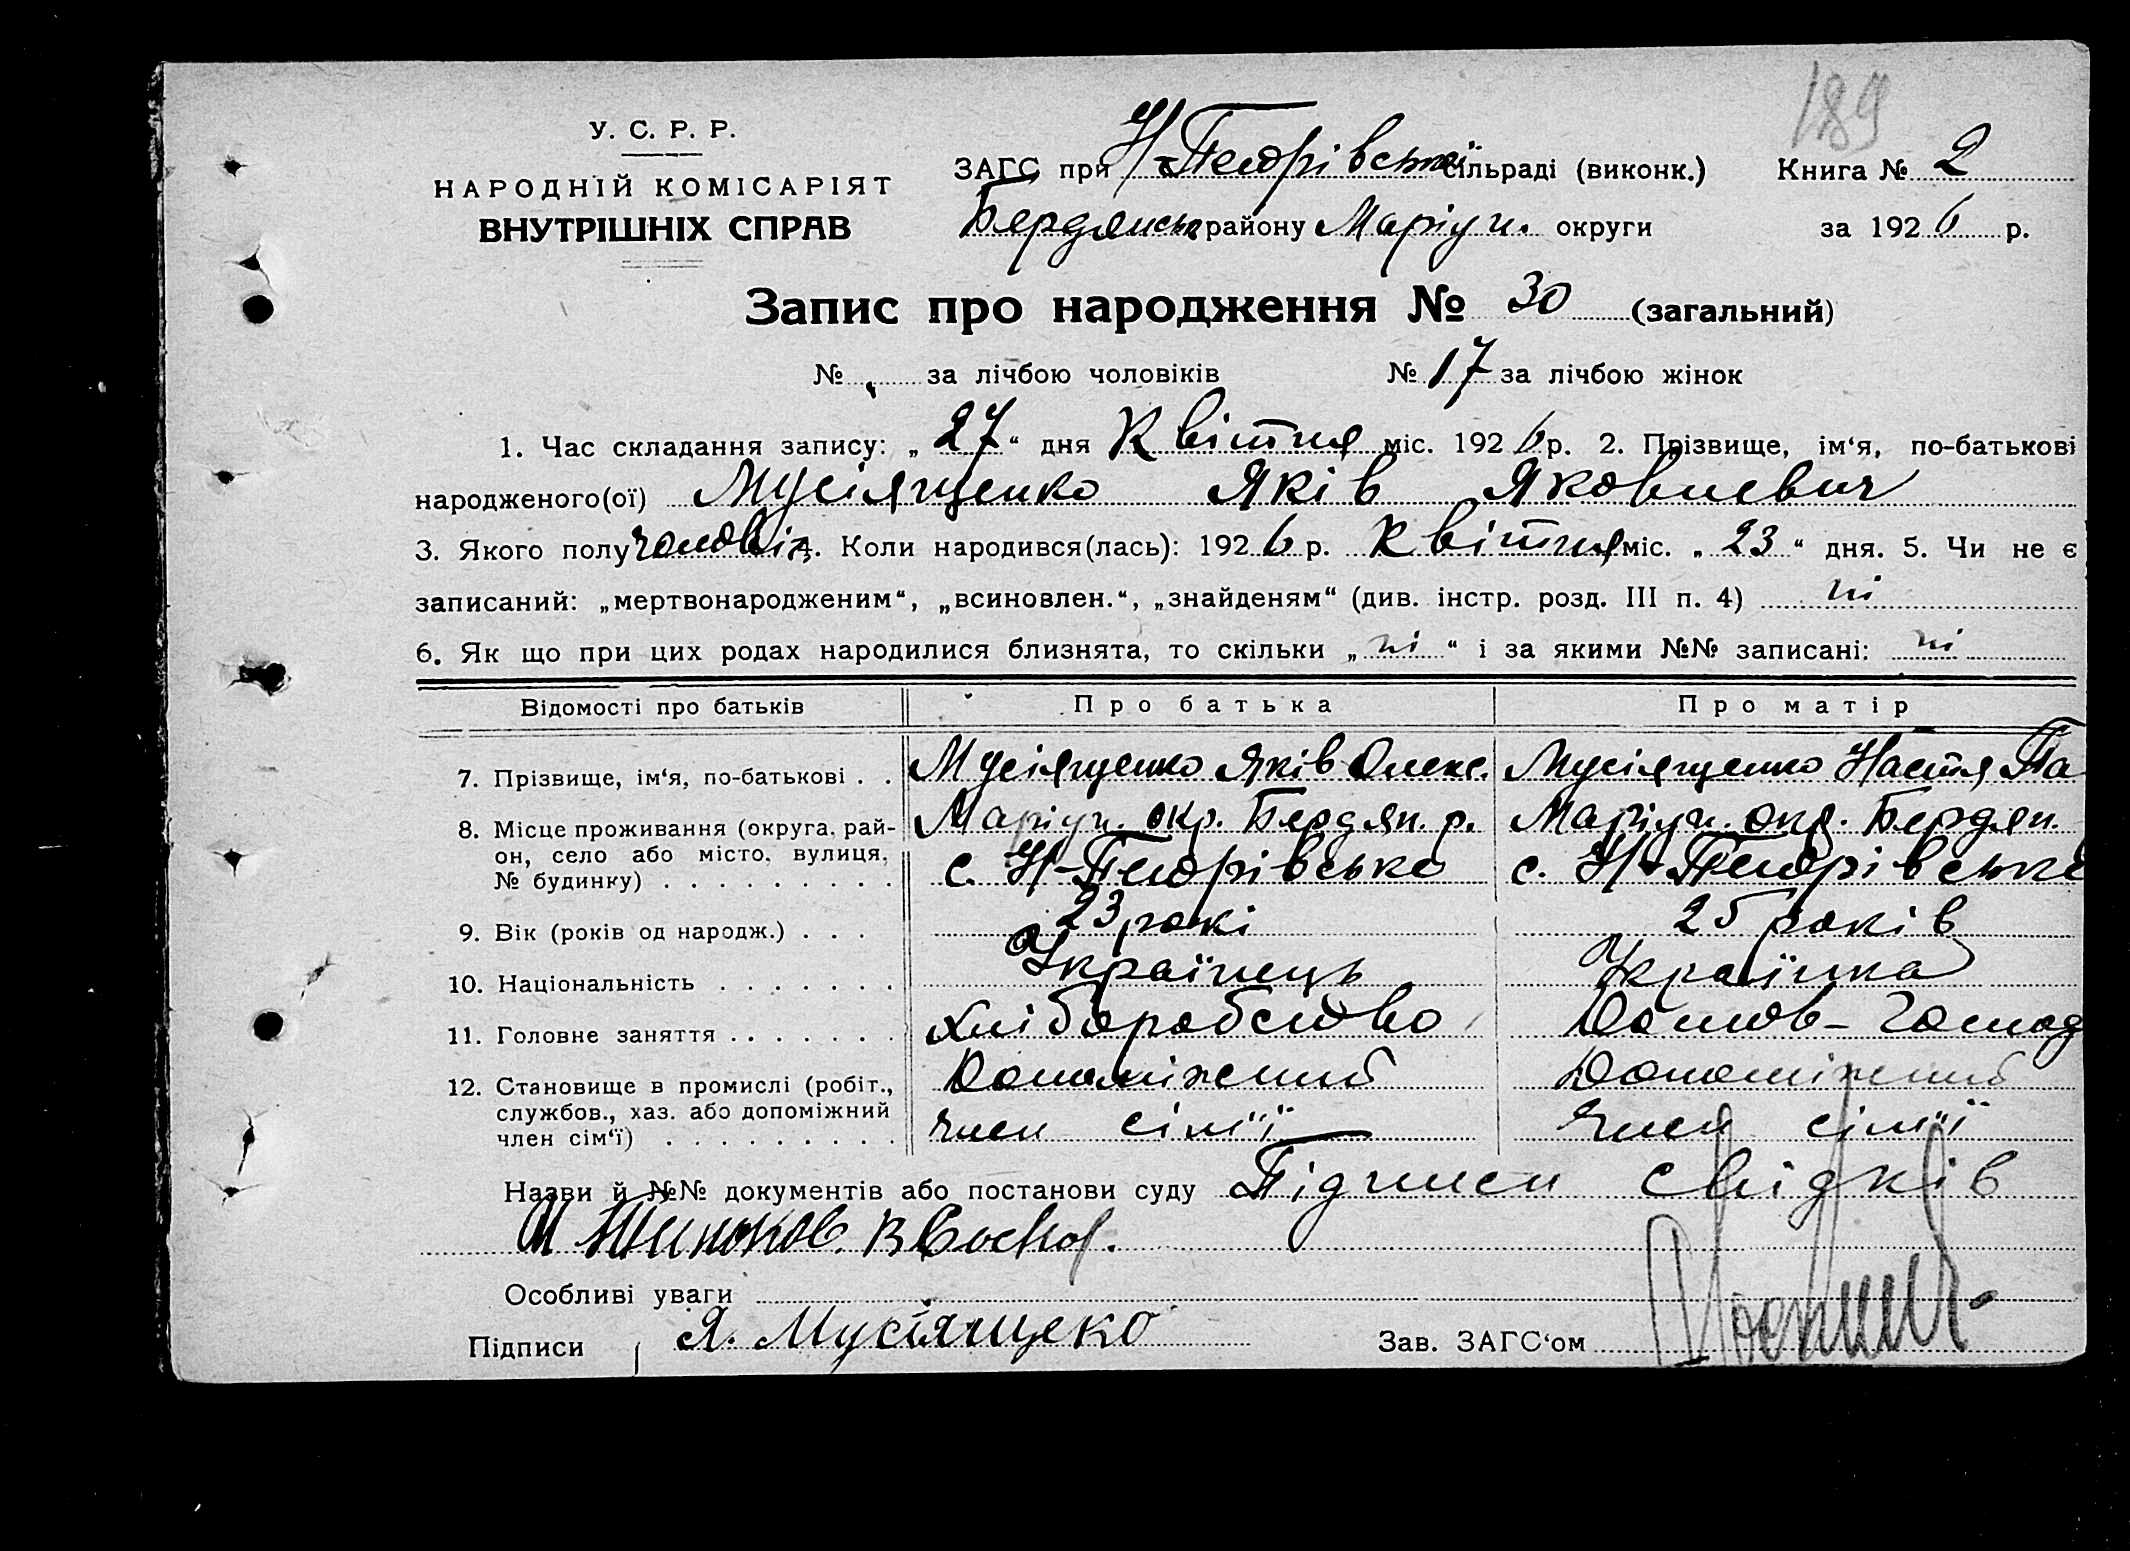 189
У. С. Р. Р.
НАРОДНІЙ КОМІСАРІЯТ
ВНУТРІШНІХ СПРАВ
ЗАГС при Н-Петрівській сільраді (виконк.) Книга № 2
Бердянськ району Маріуп. округи за 1926 р.
Запис про народження № 30 (загальний)
№ за лічбою чоловіків № 17 за лічбою жінок
1. Час складання запису: „27“ дня Квітня міс. 1926 р. 2. Прізвище, ім‘я, по-батькові
народженого(ої) Мусіященко Яків Яковлевич
3. Якого полу чоловік 4. Коли народився(лась): 1926 р. Квітня міс. „23“ дня. 5. Чи не є
записаний: „мертвонародженим“, „всиновлен.“, „знайденям“ (див. інстр. розд. III п. 4) ні
6. Як що при цих родах народилися близнята, то скільки „ні“ і за якими №№ записані: ні
Відомості про батьків Про батька Про матір
7. Прізвище, ім‘я, по-батькові . . Мусіященко Яків Олекс. Мусіященко Настя Па
8. Місце проживання (округа, рай- Маріуп. окр. Бердян. р. Маріуп. окр. Бердян.
он, село або місто, вулиця, с. Н-Петрівська с. Н-Петрівська
№ будинку) . . . . . . . . .
9. Вік (років од народж.) . . . 23 рокі 25 років
10. Національність . . . . . . . Українець Українка
11. Головне заняття . . . . . . . Хліборобство Домов-Господ
12. Становище в промислі (робіт., Допоміжний Допоміжний
службов., хаз. або допоміжний член сім'ї член сім'ї
член сім‘ї) . . . . . . . . . .
Назви й №№ документів або постанови суду Підписи свідків
Особливі уваги
Підписи Я. Мусіящеко Зав. ЗАГС‘ом